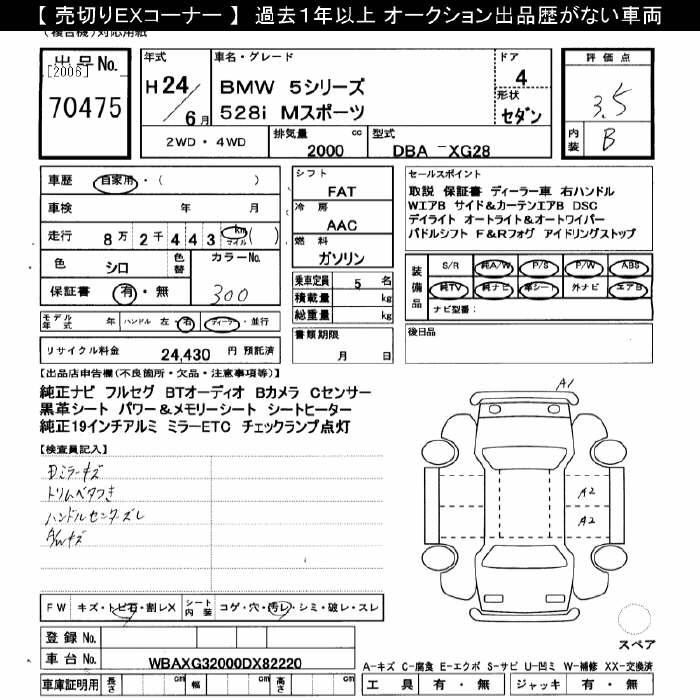 【 売切りEXコーナー 】 過去１年以上 オークション出品歴がない車両
(複合機)対応用紙
出 品 No.
[2006]
70475
年式
H 24 / 6 月
車名・グレード
BMW 5シリーズ
528i Mスポーツ
ドア
4
形状
セダン
評 価 点
3.5
内装
B
2WD ・ 4WD
排気量 cc
2000
型式
DBA －XG28
車歴 自家用・( )
車検 年 月
走行 8 万 2 千 4 4 3 km マイル ( )
色 シロ
色替
カラーNo.
300
保証書 有・無
モデル年式 年 ハンドル 左・右 ディーラー・並行
リサイクル料金 24,430 円 預託済
シフト
FAT
冷 房
AAC
燃 料
ガソリン
乗車定員 5 名
積載量 kg
総重量 kg
書類期限
月 日
セールスポイント
取説 保証書 ディーラー車 右ハンドル
WエアB サイド&カーテンエアB DSC
デイライト オートライト&オートワイパー
パドルシフト F&Rフォグ アイドリングストップ
装備品
S/R 純A/W P/S P/W ABS
純TV 純ナビ 革シート 外ナビ エアB
ナビ型番:
後日品
【出品店申告欄(不良箇所・欠品・注意事項等)】
純正ナビ フルセグ BTオーディオ Bカメラ Cセンサー
黒革シート パワー&メモリーシート シートヒーター
純正19インチアルミ ミラーETC チェックランプ点灯
【検査員記入】
Dミラーキズ
トリムベタつき
ハンドルセンターズレ
A/Wキズ
A1
A2
A2
FW キズ・トビ石・割レX
シート内装 コゲ・穴・汚レ・シミ・破レ・スレ
スペア
登 録 No.
車 台 No. WBAXG32000DX82220
A-キズ C-腐食 E-エクボ S-サビ U-凹ミ W-補修 XX-交換済
車庫証明用 長さ cm 幅 cm 高さ cm
工 具 有 ・ 無 ジャッキ 有 ・ 無